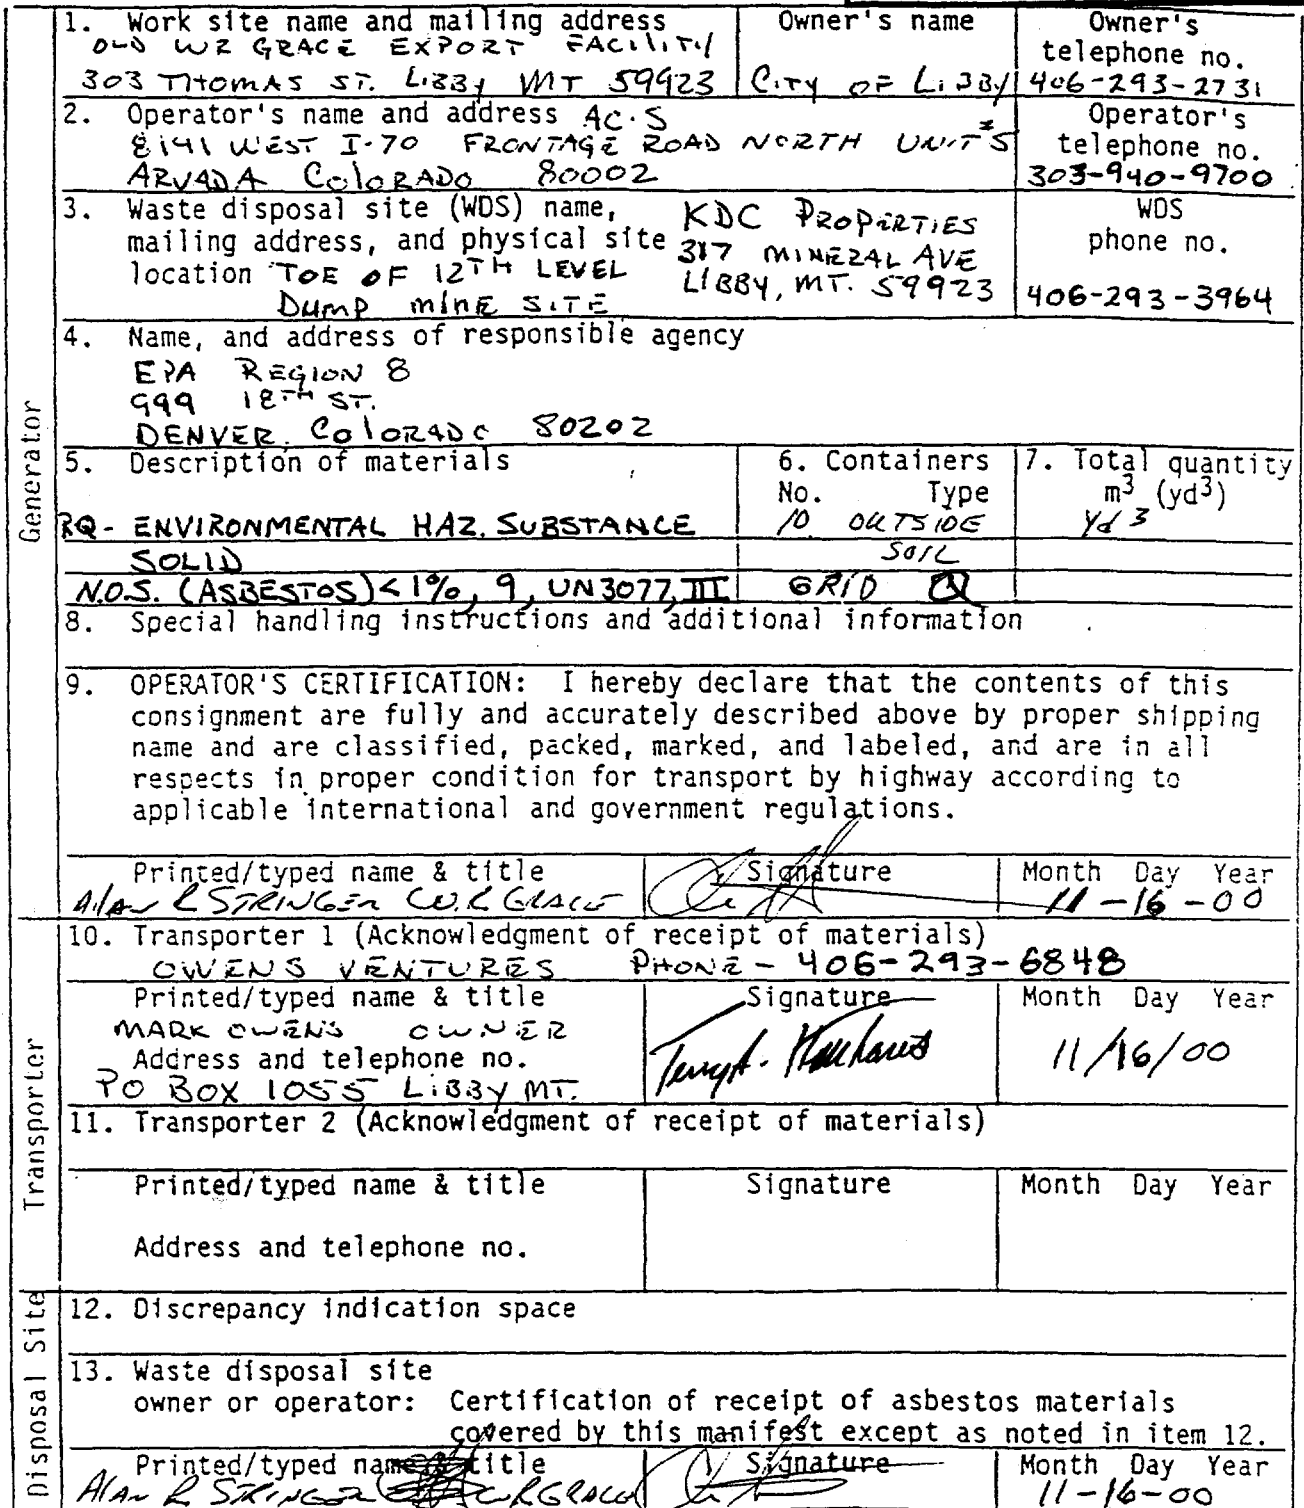 1. Work site name and mailing address
OLD WR GRACE EXPORT FACILITY
303 THOMAS ST. LIBBY MT 59923
Owner's name
CITY OF LIBBY
Owner's
telephone no.
406-293-2731
2. Operator's name and address AC·S
8141 WEST I-70 FRONTAGE ROAD NORTH UNIT #5
ARVADA COLORADO 80002
Operator's
telephone no.
303-940-9700
3. Waste disposal site (WDS) name,
mailing address, and physical site
location TOE OF 12TH LEVEL
DUMP MINE SITE
KDC PROPERTIES
317 MINERAL AVE
LIBBY, MT. 59923
WDS
phone no.
406-293-3964
4. Name, and address of responsible agency
EPA REGION 8
999 18TH ST.
DENVER, COLORADO 80202
Generator
5. Description of materials
6. Containers
No. Type
7. Total quantity
m3 (yd3)
RQ- ENVIRONMENTAL HAZ. SUBSTANCE
10 OUTSIDE
Yd 3
SOLID
SOIL
N.O.S. (ASBESTOS) <1%, 9, UN3077, III
GRID
8. Special handling instructions and additional information
9. OPERATOR'S CERTIFICATION: I hereby declare that the contents of this
consignment are fully and accurately described above by proper shipping
name and are classified, packed, marked, and labeled, and are in all
respects in proper condition for transport by highway according to
applicable international and government regulations.
Printed/typed name & title
Alan R STRINGER W.R GRACE
Signature
Month Day Year
11-16-00
Transporter
10. Transporter 1 (Acknowledgment of receipt of materials)
OWENS VENTURES PHONE - 406-293-6848
Printed/typed name & title
MARK OWENS OWNER
Address and telephone no.
PO BOX 1055 LIBBY MT.
Signature
Month Day Year
11/16/00
11. Transporter 2 (Acknowledgment of receipt of materials)
Printed/typed name & title
Address and telephone no.
Signature
Month Day Year
Disposal Site
12. Discrepancy indication space
13. Waste disposal site
owner or operator: Certification of receipt of asbestos materials
covered by this manifest except as noted in item 12.
Printed/typed name & title
Alan R STRINGER WRGRACE
Signature
Month Day Year
11-16-00